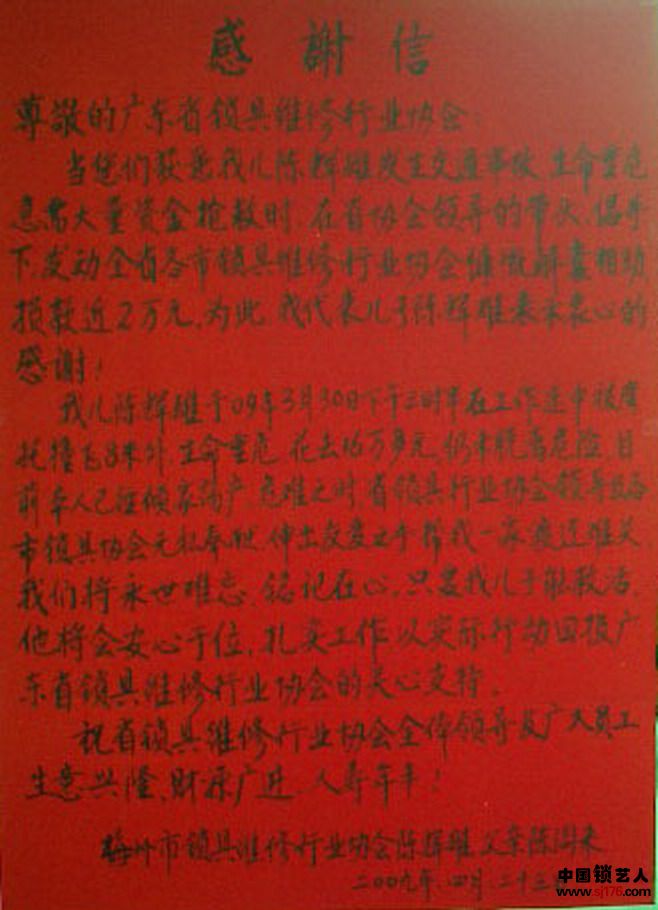 感謝信
尊敬的广东省锁具维修行业协会：
当您们获悉我儿陈辉雄发生交通事故，生命垂危
急需大量资金抢救时，在省协会领导的带头、倡导
下，发动全省各市锁具维修行业协会慷慨解囊相助，
捐款近2万元，为此，我代表儿子陈辉雄表示衷心的
感谢！
我儿陈辉雄于09年3月30日下午三时半在工作途中被摩
托撞飞8米外，生命垂危，花去16万多元，仍未脱离危险，目
前本人已经倾家荡产，危难之时，省锁具行业协会领导及各
市锁具协会无私奉献，伸出友爱之手帮我一家渡过难关，
我们将永世难忘，铭记在心，只要我儿子能救活，
他将会安心于位，扎实工作，以实际行动回报广
东省锁具维修行业协会的关心支持。
祝省锁具维修行业协会全体领导及广大员工
生意兴隆、财源广进、人寿年丰！
梅州市锁具维修行业协会陈辉雄父亲陈
二00九年.四月.二十三
中国锁艺人
www.sj176.com